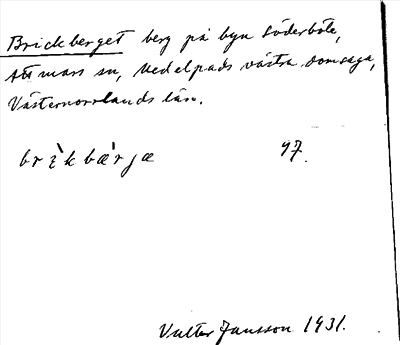 Brickberget berg på byn Söderböle,
Attmars sn, Medelpads västra domsaga,
Västernorrlands län.
brìkbæ̀rjæ 97.
Valter Jansson 1931.